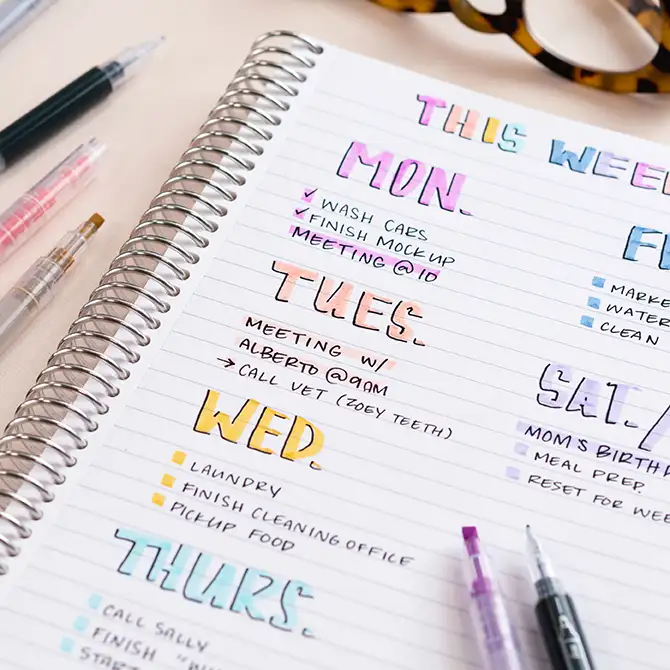 THIS WEEK
MON.
✓ WASH CARS
✓ FINISH MOCKUP
MEETING @ 10
TUES.
MEETING W/
ALBERTO @ 9AM
→ CALL VET (ZOEY TEETH)
WED.
LAUNDRY
FINISH CLEANING OFFICE
PICKUP FOOD
THURS.
CALL SALLY
FINISH
START
WATER
CLEAN
SAT./
MOM'S
MEAL PREP.
RESET FOR